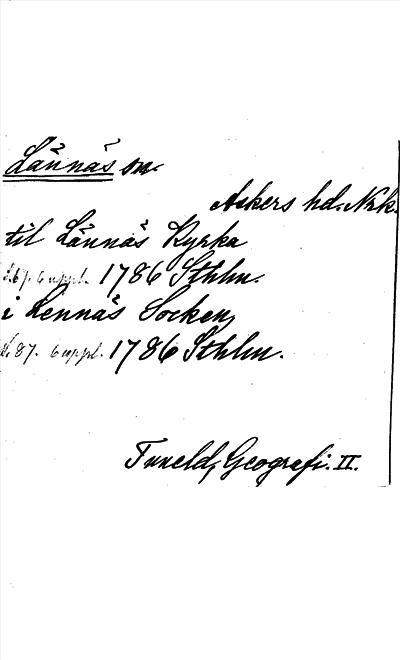 Lännäs sn.
Askers hd. Nrk.
til Lännäs Kyrka
s. 67. 6 uppl. 1786 Sthlm.
i Lennäs Socken,
s. 87. 6 uppl. 1786 Sthlm.
Tuneld, Geografi. II.